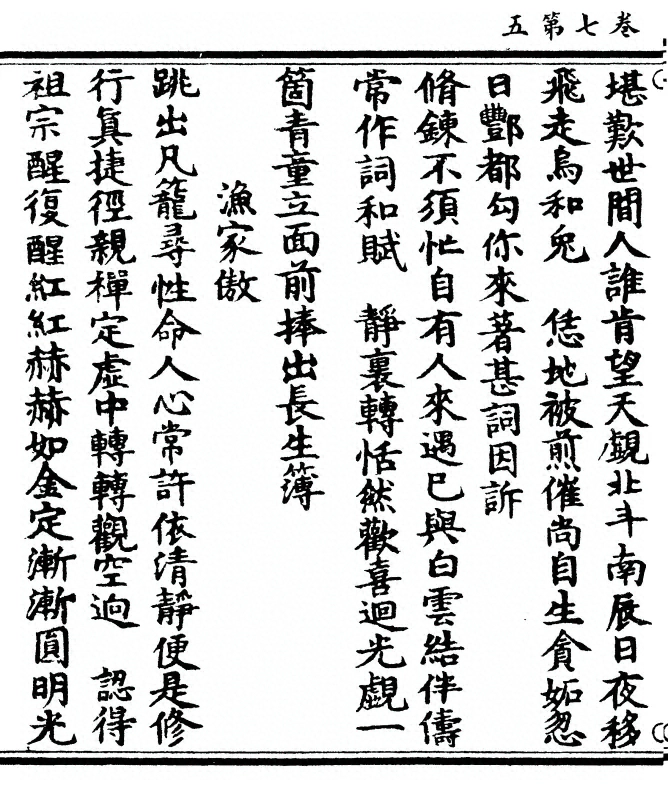 卷七第五
堪歎世間人誰肯望天覷北斗南辰日夜移
飛走烏和兔　恁地被煎催尚自生貪妬忽
日酆都勾你來著甚詞因訴
脩鍊不須忙自有人來遇已與白雲結伴儔
常作詞和賦　靜裏轉恬然歡喜迴光覷一
箇青童立面前捧出長生簿
漁家傲
跳出凡籠尋性命人心常許依清靜便是修
行真捷徑親禪定虛中轉轉觀空迥　認得
祖宗醒復醒紅紅赫赫如金定漸漸圓明光